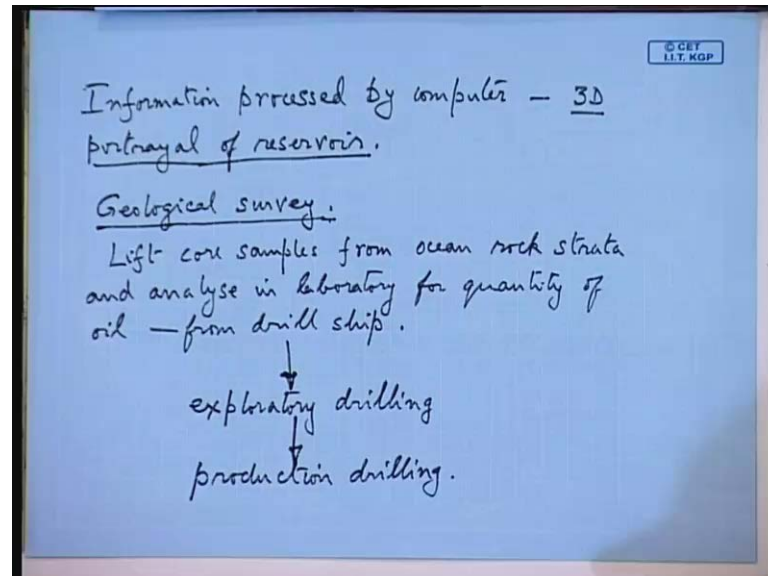 © CET
I.I.T. KGP
Information processed by computer – 3D
portrayal of reservoir.
Geological survey.
Lift core samples from ocean rock strata
and analyse in laboratory for quantity of
oil – from drill ship.
exploratory drilling
production drilling.